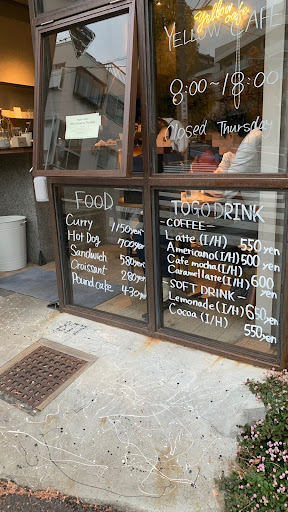 Yellow Cafe
YELLOW CAFE
8:00~18:00
Closed Thursday
FOOD
Curry 1150yen
Hot Dog 700yen
Sandwich 580yen
Croissant 280yen
Pound cake 430yen
TOGO DRINK
COFFEE-
Latte (I/H) 550yen
Americano(I/H) 500yen
Cafe mocha(I/H) 600yen
Caramel latte(I/H) 600yen
SOFT DRINK-
Lemonade(I/H) 650yen
Cocoa (I/H) 550yen